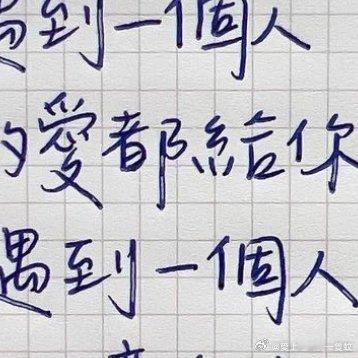 遇到一個人
的愛都給你
遇到一個人